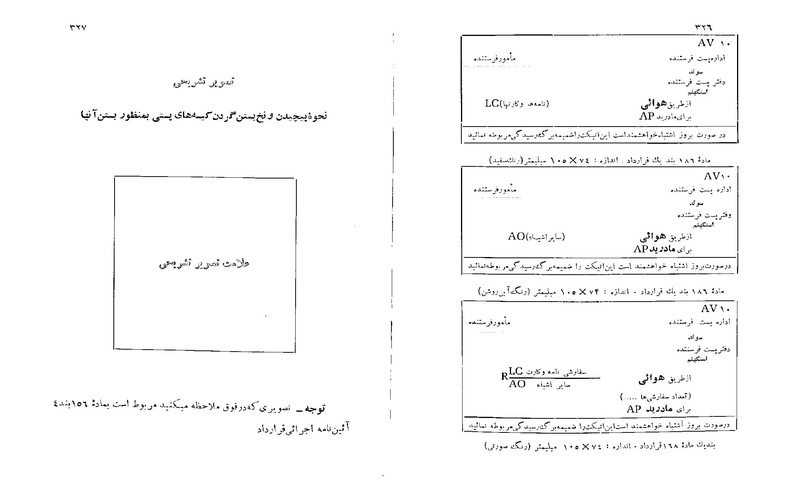 ۳۲۶
AV ۱۰
اداره پست فرستنده
مأمور فرستنده
سوئد
دفتر پست فرستنده
استکهلم
ازطریق هوائی
(نامه‌ها وکارتها) LC
برای مادرید AP
در صورت بروز اشتباه خواهشمند است این اتیکت را ضمیمه برگ رسیدگی مربوطه نمائید
مادۀ ۱۸۶ بند یك قرارداد . اندازه : ۷۴ × ۱۰۵ میلیمتر (رنگ سفید)
AV۱۰
اداره پست فرستنده
مأمور فرستنده
سوئد
دفتر پست فرستنده
استکهلم
ازطریق هوائی
(سایر اشیاء) AO
برای مادرید AP
درصورت بروز اشتباه خواهشمند است این اتیکت را ضمیمه برگ رسیدگی مربوطه نمائید
مادۀ ۱۸۶ بند یك قرارداد . اندازه : ۷۴ × ۱۰۵ میلیمتر (رنگ آبی روشن)
AV۱۰
اداره پست فرستنده
مأمور فرستنده
سوئد
دفتر پست فرستنده
استکهلم
سفارشی نامه وکارت LC
R
ازطریق هوائی
سایر اشیاء AO
(تعداد سفارشی‌ها .....)
برای مادرید AP
درصورت بروز اشتباه خواهشمند است این اتیکت را ضمیمه برگ رسیدگی مربوطه نمائید
بندیك مادۀ ۱۶۸ قرارداد . اندازه : ۷۴ × ۱۰۵ میلیمتر (رنگ صورتی)
۳۲۷
تصویر تشریحی
نحوۀ پیچیدن و نخ بستن گردن کیسه‌های پستی بمنظور بستن آنها
علامت تصویر تشریحی
توجه ـ تصویری که درفوق ملاحظه میکنید مربوط است بمادۀ ۱۵۶ بند ٤
آئین‌نامه اجرائی قرارداد